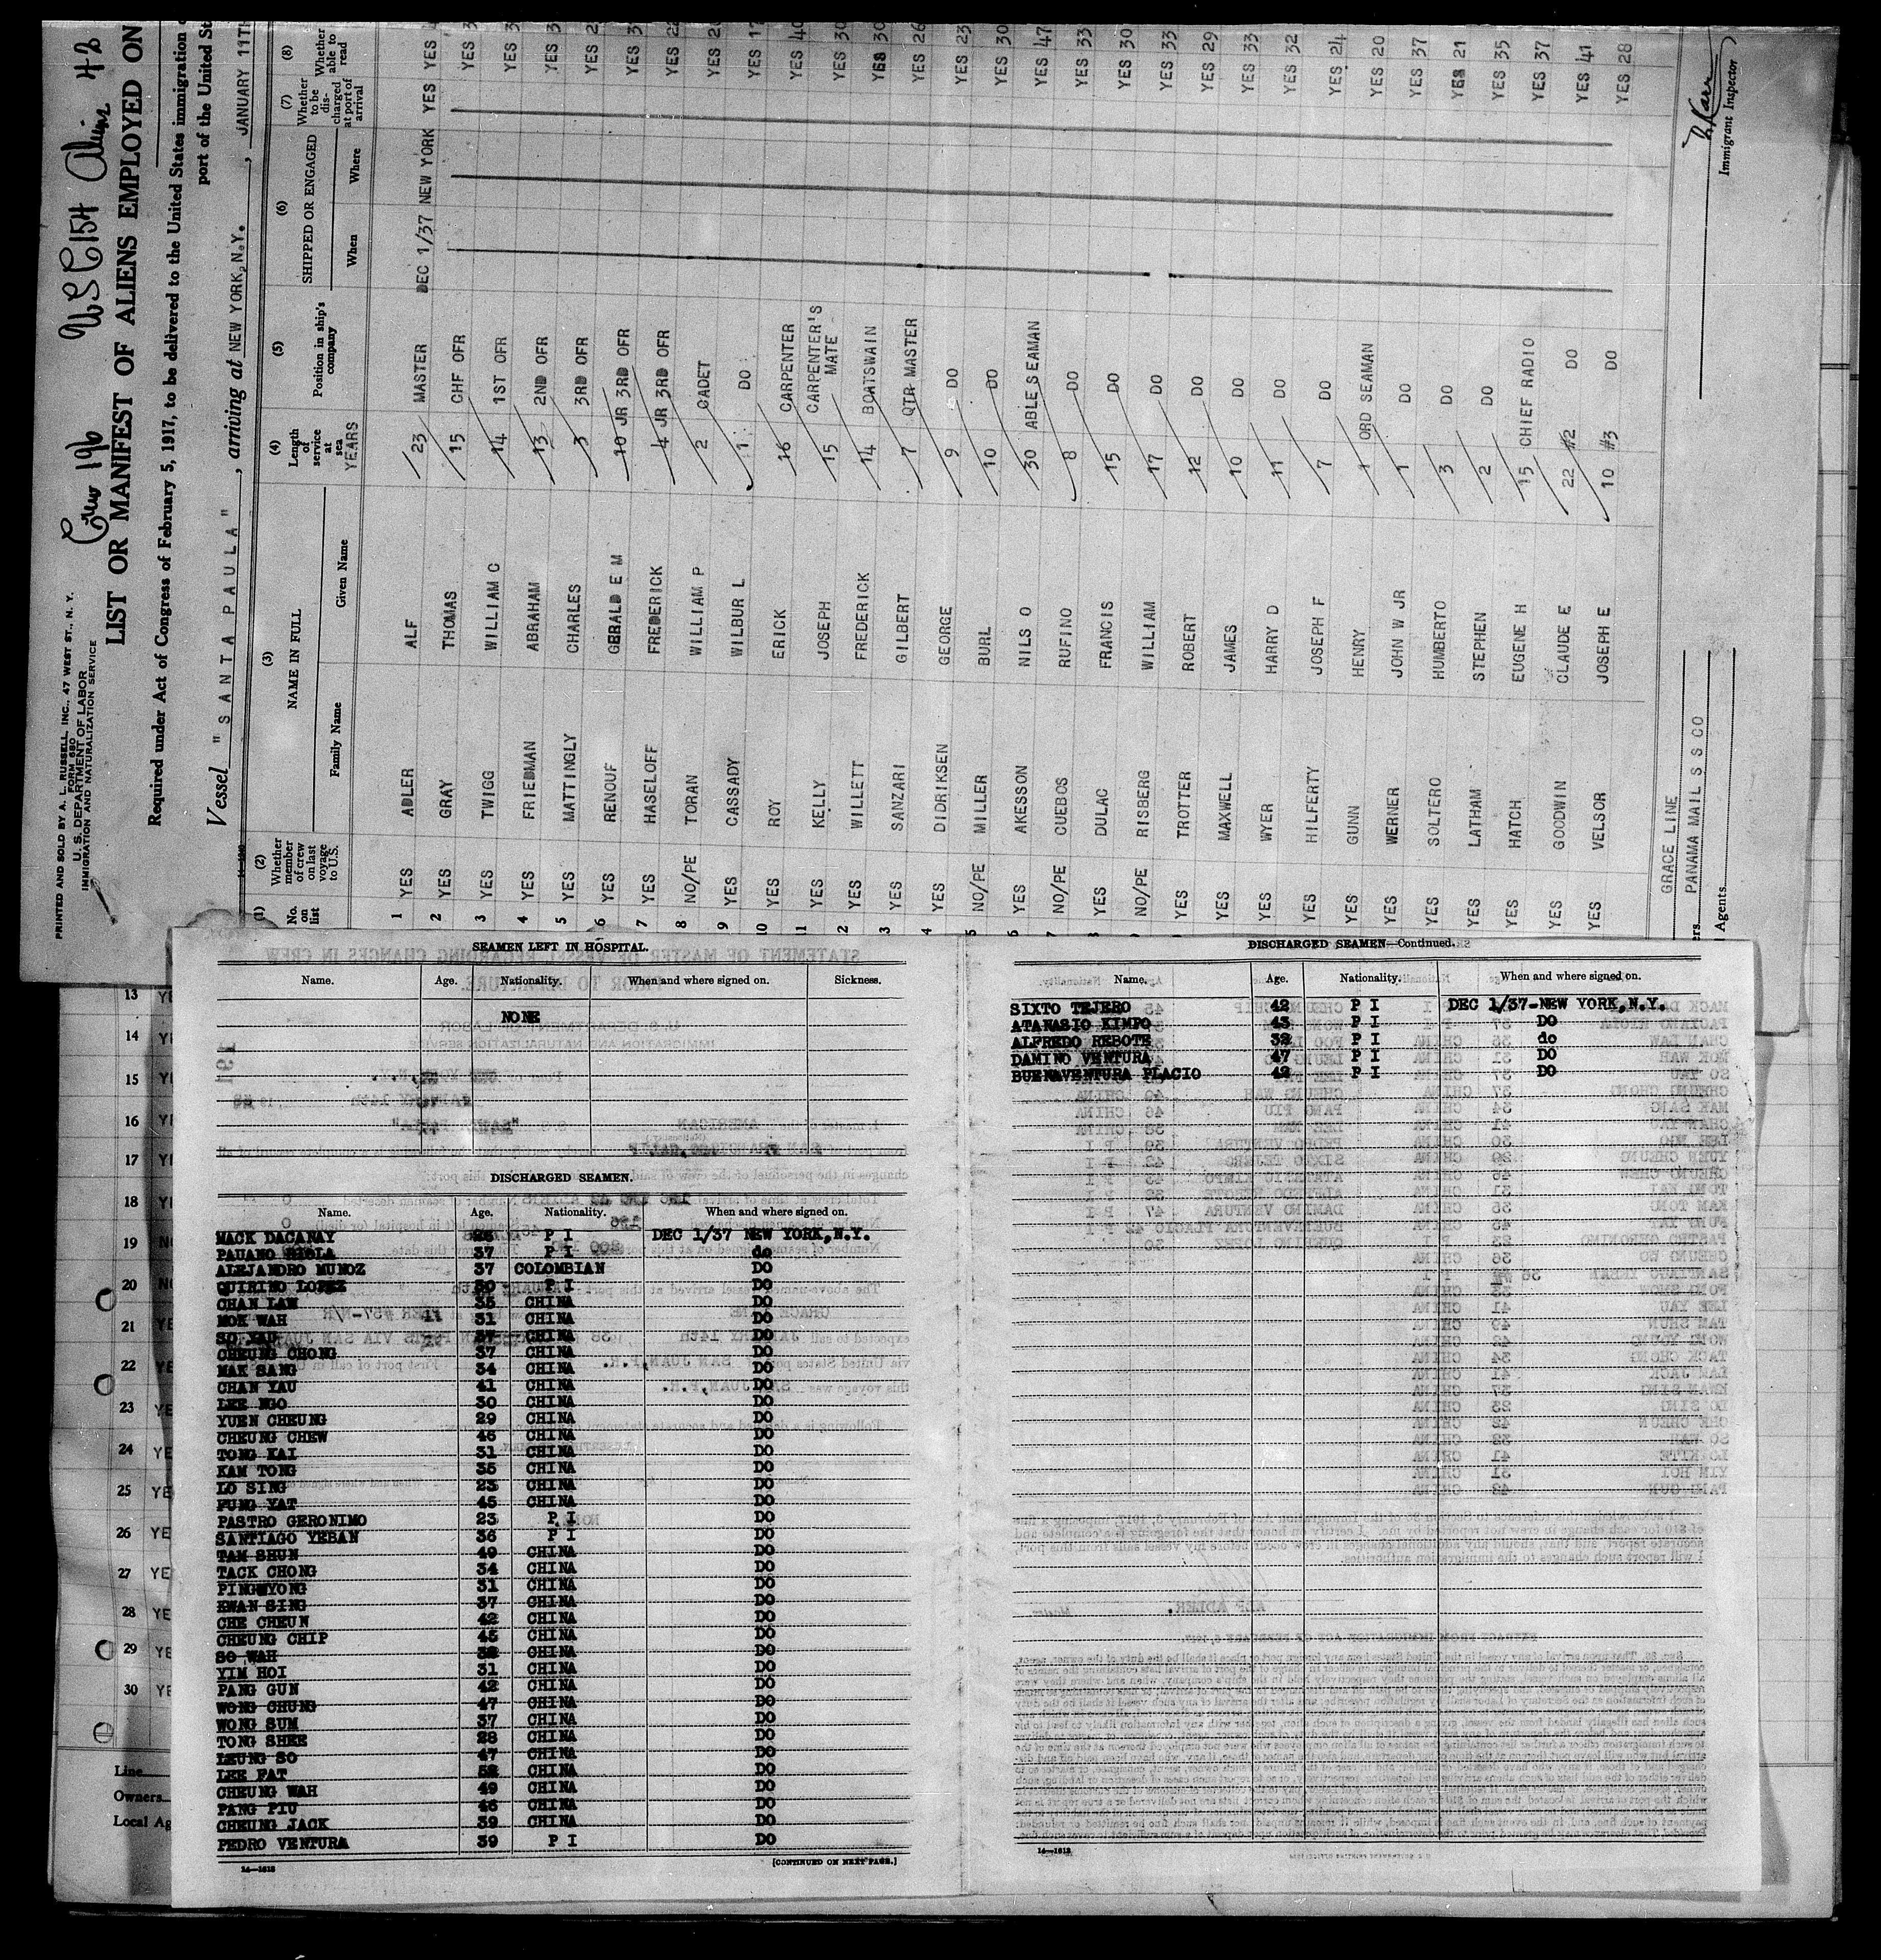 Crew 196 USC 154 Aliens 42
PRINTED AND SOLD BY A. L. RUSSELL, INC., 47 WEST ST., N. Y.
FORM 680
U. S. DEPARTMENT OF LABOR
IMMIGRATION AND NATURALIZATION SERVICE
LIST OR MANIFEST OF ALIENS EMPLOYED ON
Required under Act of Congress of February 5, 1917, to be delivered to the United States immigration
port of the United St
Vessel "SANTA PAULA", arriving at NEW YORK,N.Y., JANUARY 11TH
(1) No. on list (2) Whether member of crew on last voyage to U.S. (3) NAME IN FULL Family Name Given Name (4) Length of service at sea YEARS (5) Position in ship's company (6) SHIPPED OR ENGAGED When Where (7) Whether to be discharged at port of arrival (8) Whether able to read
1 YES ADLER ALF 23 MASTER DEC 1/37 NEW YORK YES YES
2 YES GRAY THOMAS 15 CHF OFR YES
3 YES TWIGG WILLIAM C 14 1ST OFR YES
4 YES FRIEDMAN ABRAHAM 13 2ND OFR YES
5 YES MATTINGLY CHARLES 3 3RD OFR YES
6 YES RENOUF GERALD E M 10 JR 3RD OFR YES
7 YES HASELOFF FREDERICK 4 JR 3RD OFR YES
8 NO/PE TORAN WILLIAM P 2 CADET YES
9 YES CASSADY WILBUR L 1 DO YES
10 YES ROY ERICK 16 CARPENTER YES 40
11 YES KELLY JOSEPH 15 CARPENTER'S MATE YES 30
2 YES WILLETT FREDERICK 14 BOATSWAIN YES 30
3 YES SANZARI GILBERT 7 QTR MASTER YES 26
4 YES DIDRIKSEN GEORGE 9 DO YES 23
5 NO/PE MILLER BURL 10 DO YES 30
6 YES AKESSON NILS O 30 ABLE SEAMAN YES 47
7 NO/PE CUEBOS RUFINO 8 DO YES 33
8 YES DULAC FRANCIS 15 DO YES 30
9 NO/PE RISBERG WILLIAM 17 DO YES 33
YES TROTTER ROBERT 12 DO YES 29
YES MAXWELL JAMES 10 DO YES 33
YES WYER HARRY D 11 DO YES 32
YES HILFERTY JOSEPH F 7 DO YES 24
YES GUNN HENRY 1 ORD SEAMAN YES 20
YES WERNER JOHN W JR 1 DO YES 37
YES SOLTERO HUMBERTO 3 DO YES 21
YES LATHAM STEPHEN 2 DO YES 35
YES HATCH EUGENE H 15 CHIEF RADIO YES 37
YES GOODWIN CLAUDE E 22 #2 DO YES 41
YES VELSOR JOSEPH E 10 #3 DO YES 28
GRACE LINE
ers PANAMA MAIL S S CO
Agents
Immigrant Inspector
13 YE
14 YE
15 YE
16 YE
17 YE
18 YE
19 NO
20 NO
21 YE
22 YE
23 YE
24 YE
25 YE
26 YE
27 YE
28 YE
29 YE
30 YE
Line
Owners
Local Ag
SEAMEN LEFT IN HOSPITAL.
Name. Age. Nationality. When and where signed on. Sickness.
NONE
DISCHARGED SEAMEN.
Name. Age. Nationality. When and where signed on.
MACK DACANAY P I DEC 1/37 NEW YORK,N.Y.
37 P I do
ALEJANDRO MUNOZ 37 COLOMBIAN DO
QUIRINO LOPEZ 30 P I DO
CHAN LAW 35 CHINA DO
MOK WAH 31 CHINA DO
SO YAU 37 CHINA DO
CHEUNG CHONG 37 CHINA DO
MAK SANG 34 CHINA DO
CHAN YAU 41 CHINA DO
LEE NGO 30 CHINA DO
YUEN CHEUNG 29 CHINA DO
CHEUNG CHEW 46 CHINA DO
TONG KAI 31 CHINA DO
KAM TONG 35 CHINA DO
LO SING 23 CHINA DO
FUNG YAT 45 CHINA DO
PASTRO GERONIMO 23 P I DO
SANTIAGO YEBAN 36 P I DO
TAM SHUN 49 CHINA DO
TACK CHONG 34 CHINA DO
31 CHINA DO
KWAN SING 37 CHINA DO
CHE CHEUN 42 CHINA DO
CHEUNG CHIP 45 CHINA DO
SO WAH 32 CHINA DO
YIM HOI 31 CHINA DO
PANG GUN 42 CHINA DO
WONG CHUNG 47 CHINA DO
WONG SUM 37 CHINA DO
TONG SHEE 28 CHINA DO
LEUNG SO 47 CHINA DO
LEE FAT 52 CHINA DO
CHEUNG WAH 49 CHINA DO
PANG PIU 46 CHINA DO
CHEUNG JACK 39 CHINA DO
PEDRO VENTURA 39 P I DO
14—1613 [CONTINUED ON NEXT PAGE.]
DISCHARGED SEAMEN—Continued.
Name. Age. Nationality. When and where signed on.
SIXTO TEJERO 42 P I DEC 1/37-NEW YORK,N.Y.
ATANASIO KIMPO 43 P I DO
ALFREDO REBOTE 32 P I do
DAMINO VENTURA 47 P I DO
BUENAVENTURA PLACIO 42 P I DO
14—1613